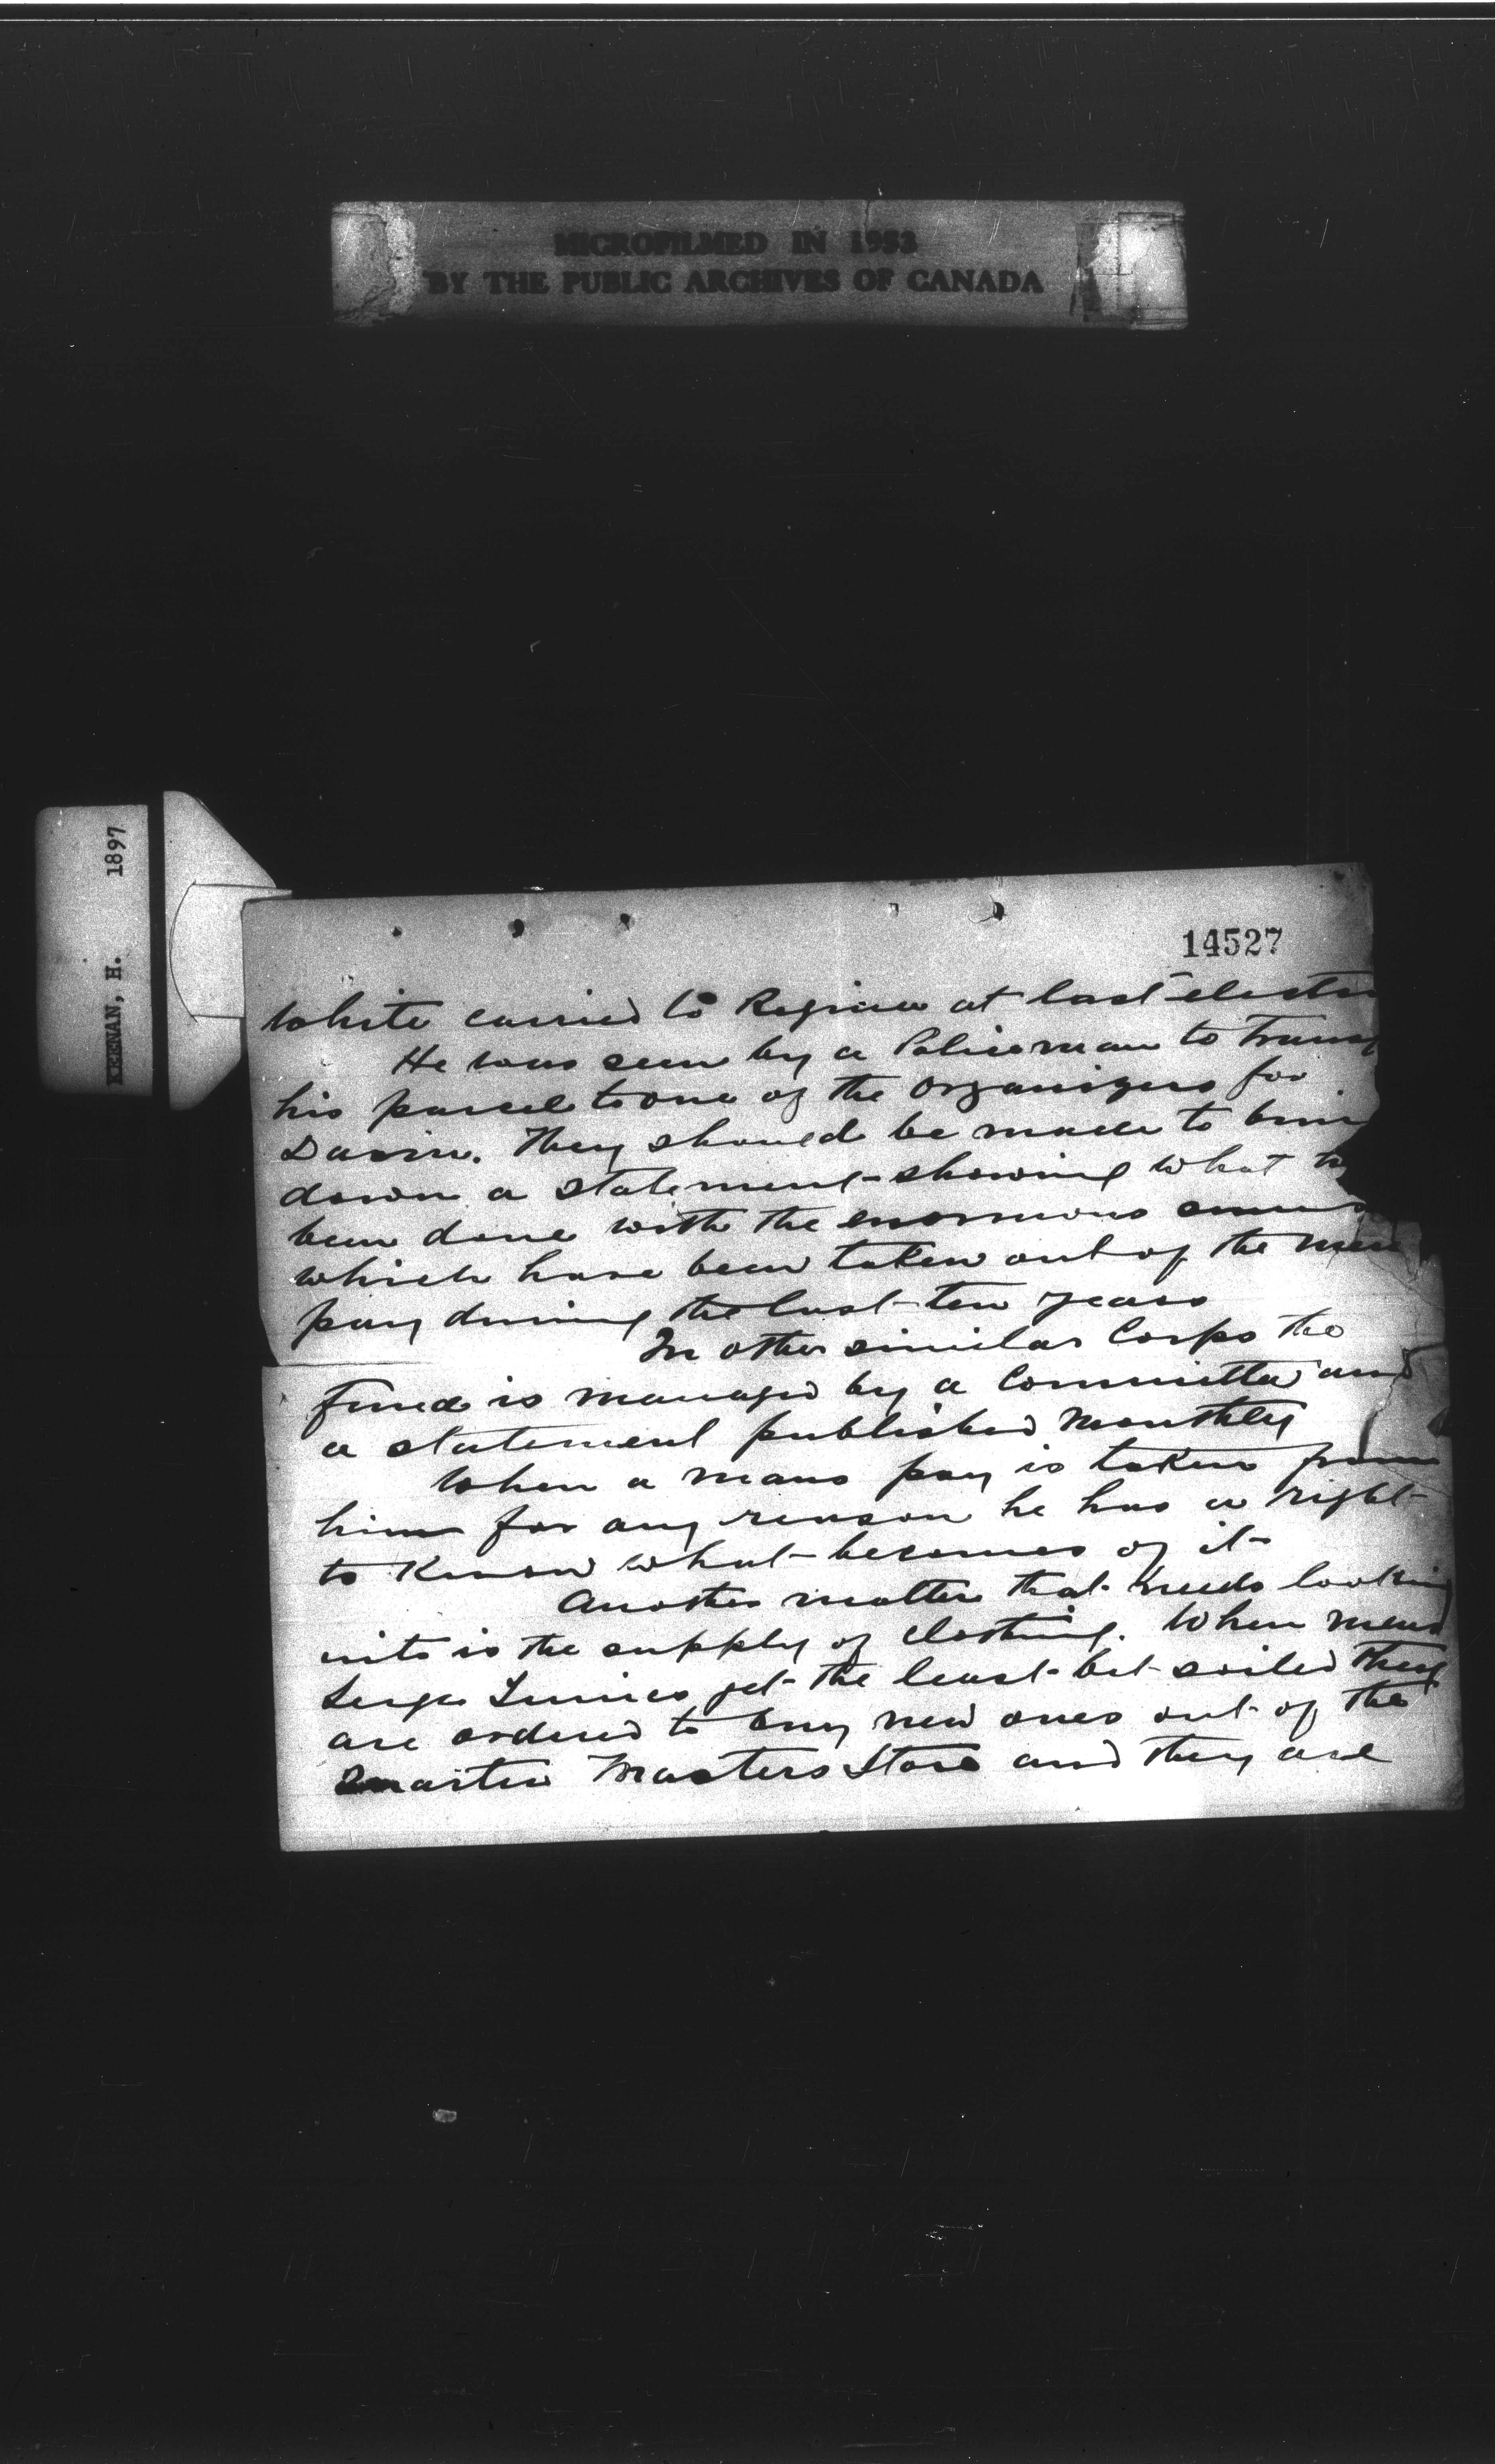 MICROFILMED IN 1953
BY THE PUBLIC ARCHIVES OF CANADA
KEENAN, H. 1897
14527
White carried to Regina at last
He was seen by a Policeman to
his parcel to one of the organizers for
Davin. They should be made to
down a statement showing what
been done with the enormous sums
which have been taken out of the men
pay during the last ten years
In other similar Corps the
fund is managed by a Committee and
a statement published monthly
When a mans pay is taken from
him for any reason he has a right
to know what becomes of it
Another matter that needs looking
into is the supply of clothing. When mens
Serge Tunics get the least bit soiled they
are ordered to buy new ones out of the
Masters Store and they are